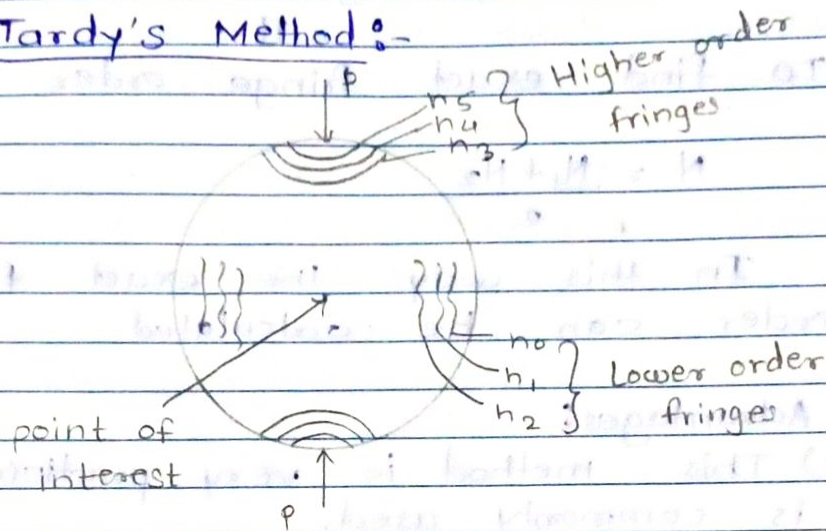 Tardy's Method :-
P
n5
n4
n3
Higher order
fringes
n0
n1
n2
Lower order
fringes
point of
interest
P